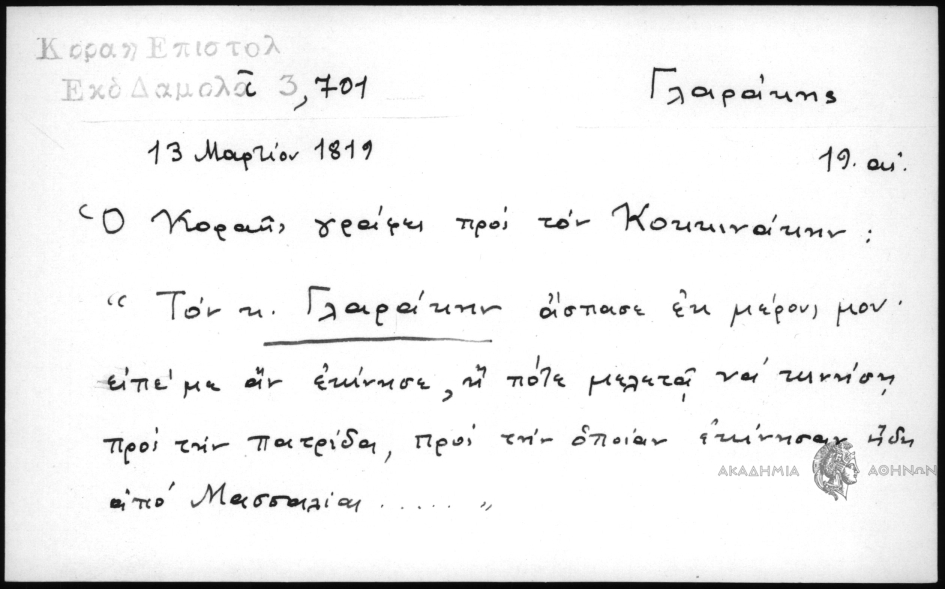 Κοραη Επιστολ
Εκδ Δαμαλᾶ 3, 701
Γλαράκης
13 Μαρτίου 1819
19. αἰ.
Ὁ Κοραῆς γράφει πρὸς τὸν Κοκκινάκην :
“ Τὸν κ. Γλαράκην ἄσπασε ἐκ μέρους μου·
εἰπέ με ἂν ἐκίνησε, ἢ πότε μελετᾷ νὰ κινήσῃ
πρὸς τὴν πατρίδα, πρὸς τὴν ὁποίαν ἐκίνησαν ἤδη
ἀπὸ Μασσαλίας ..... „
ΑΚΑΔΗΜΙΑ ΑΘΗΝΩΝ